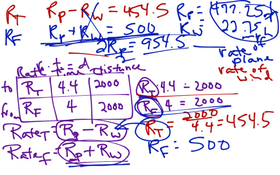 R_T R_P - R_W = 454.5
R_F R_P + R_W = 500
2R_P = 954.5
R_P = 477.25
R_W = 22.75
rate of plane
rate of wind
Rate t = d
Rate Time Distance
to R_T 4.4 2000
from R_F 4 2000
R_T 4.4 = 2000
R_F 4 = 2000
Rate_T = R_P - R_W
Rate_F = R_P + R_W
R_T = 2000/4.4 = 454.5
R_F = 500